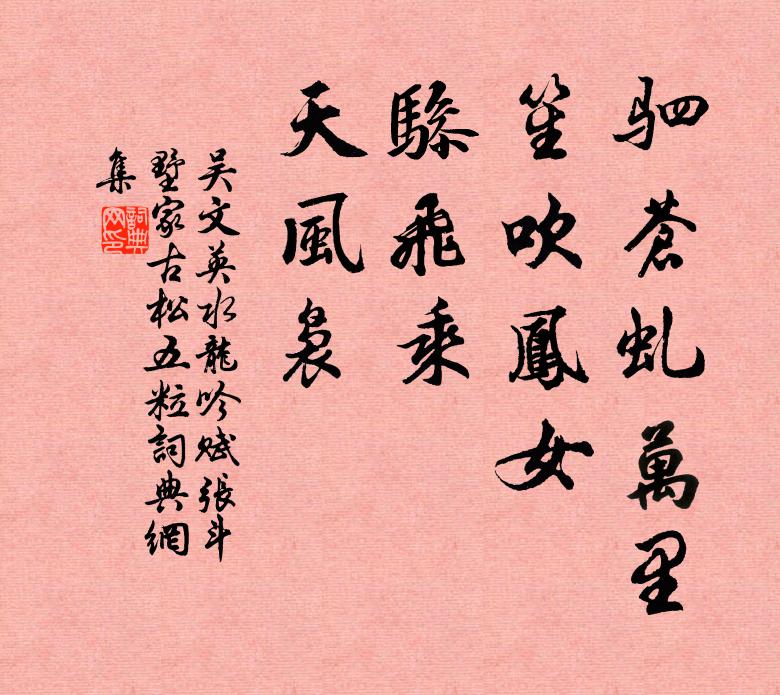 驷蒼虬萬里
笙吹鳳女
驂飛乘
天風裊
吴文英水龍吟賦張斗
墅家古松五粒詞典網
集
詞典
网印